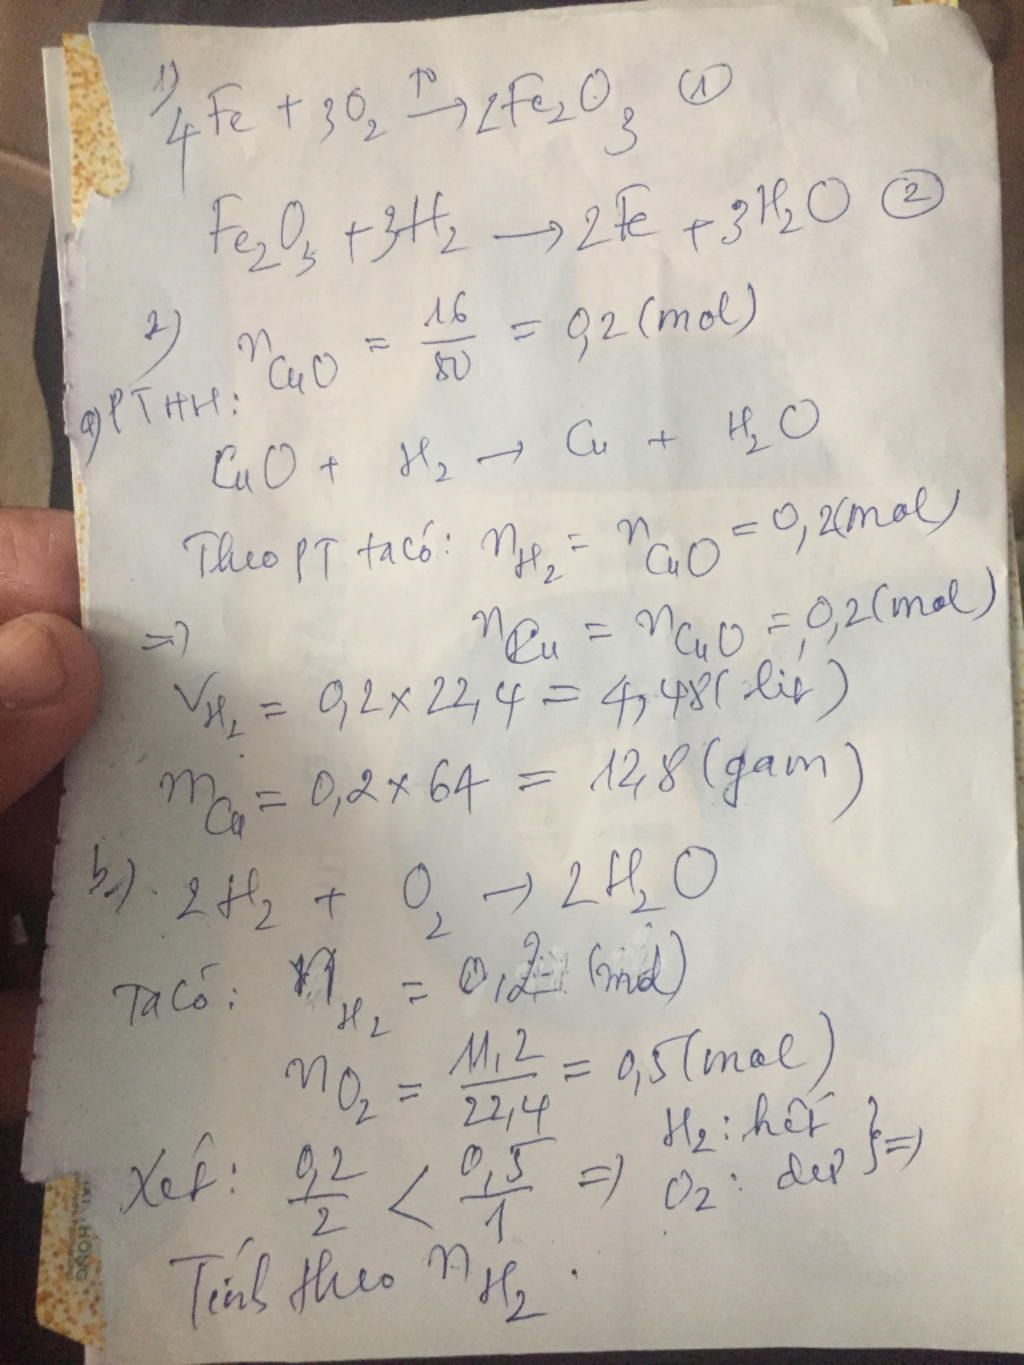 1) 4Fe + 3O2 t° → 2Fe2O3 ①
Fe2O3 + 3H2 → 2Fe + 3H2O ②
2) nCuO = 16/80 = 0,2 (mol)
a) PTHH:
CuO + H2 → Cu + H2O
Theo PT ta có: nH2 = nCuO = 0,2(mol)
nCu = nCuO = 0,2 (mol)
=>
VH2 = 0,2 x 22,4 = 4,48 (lít)
mCu = 0,2 x 64 = 12,8 (gam)
b) 2H2 + O2 → 2H2O
Ta có: nH2 = 0,2 (mol)
nO2 = 11,2/22,4 = 0,5 (mol)
Xét: 0,2/2 < 0,5/1 => H2: hết O2: dư } =>
Tính theo nH2.